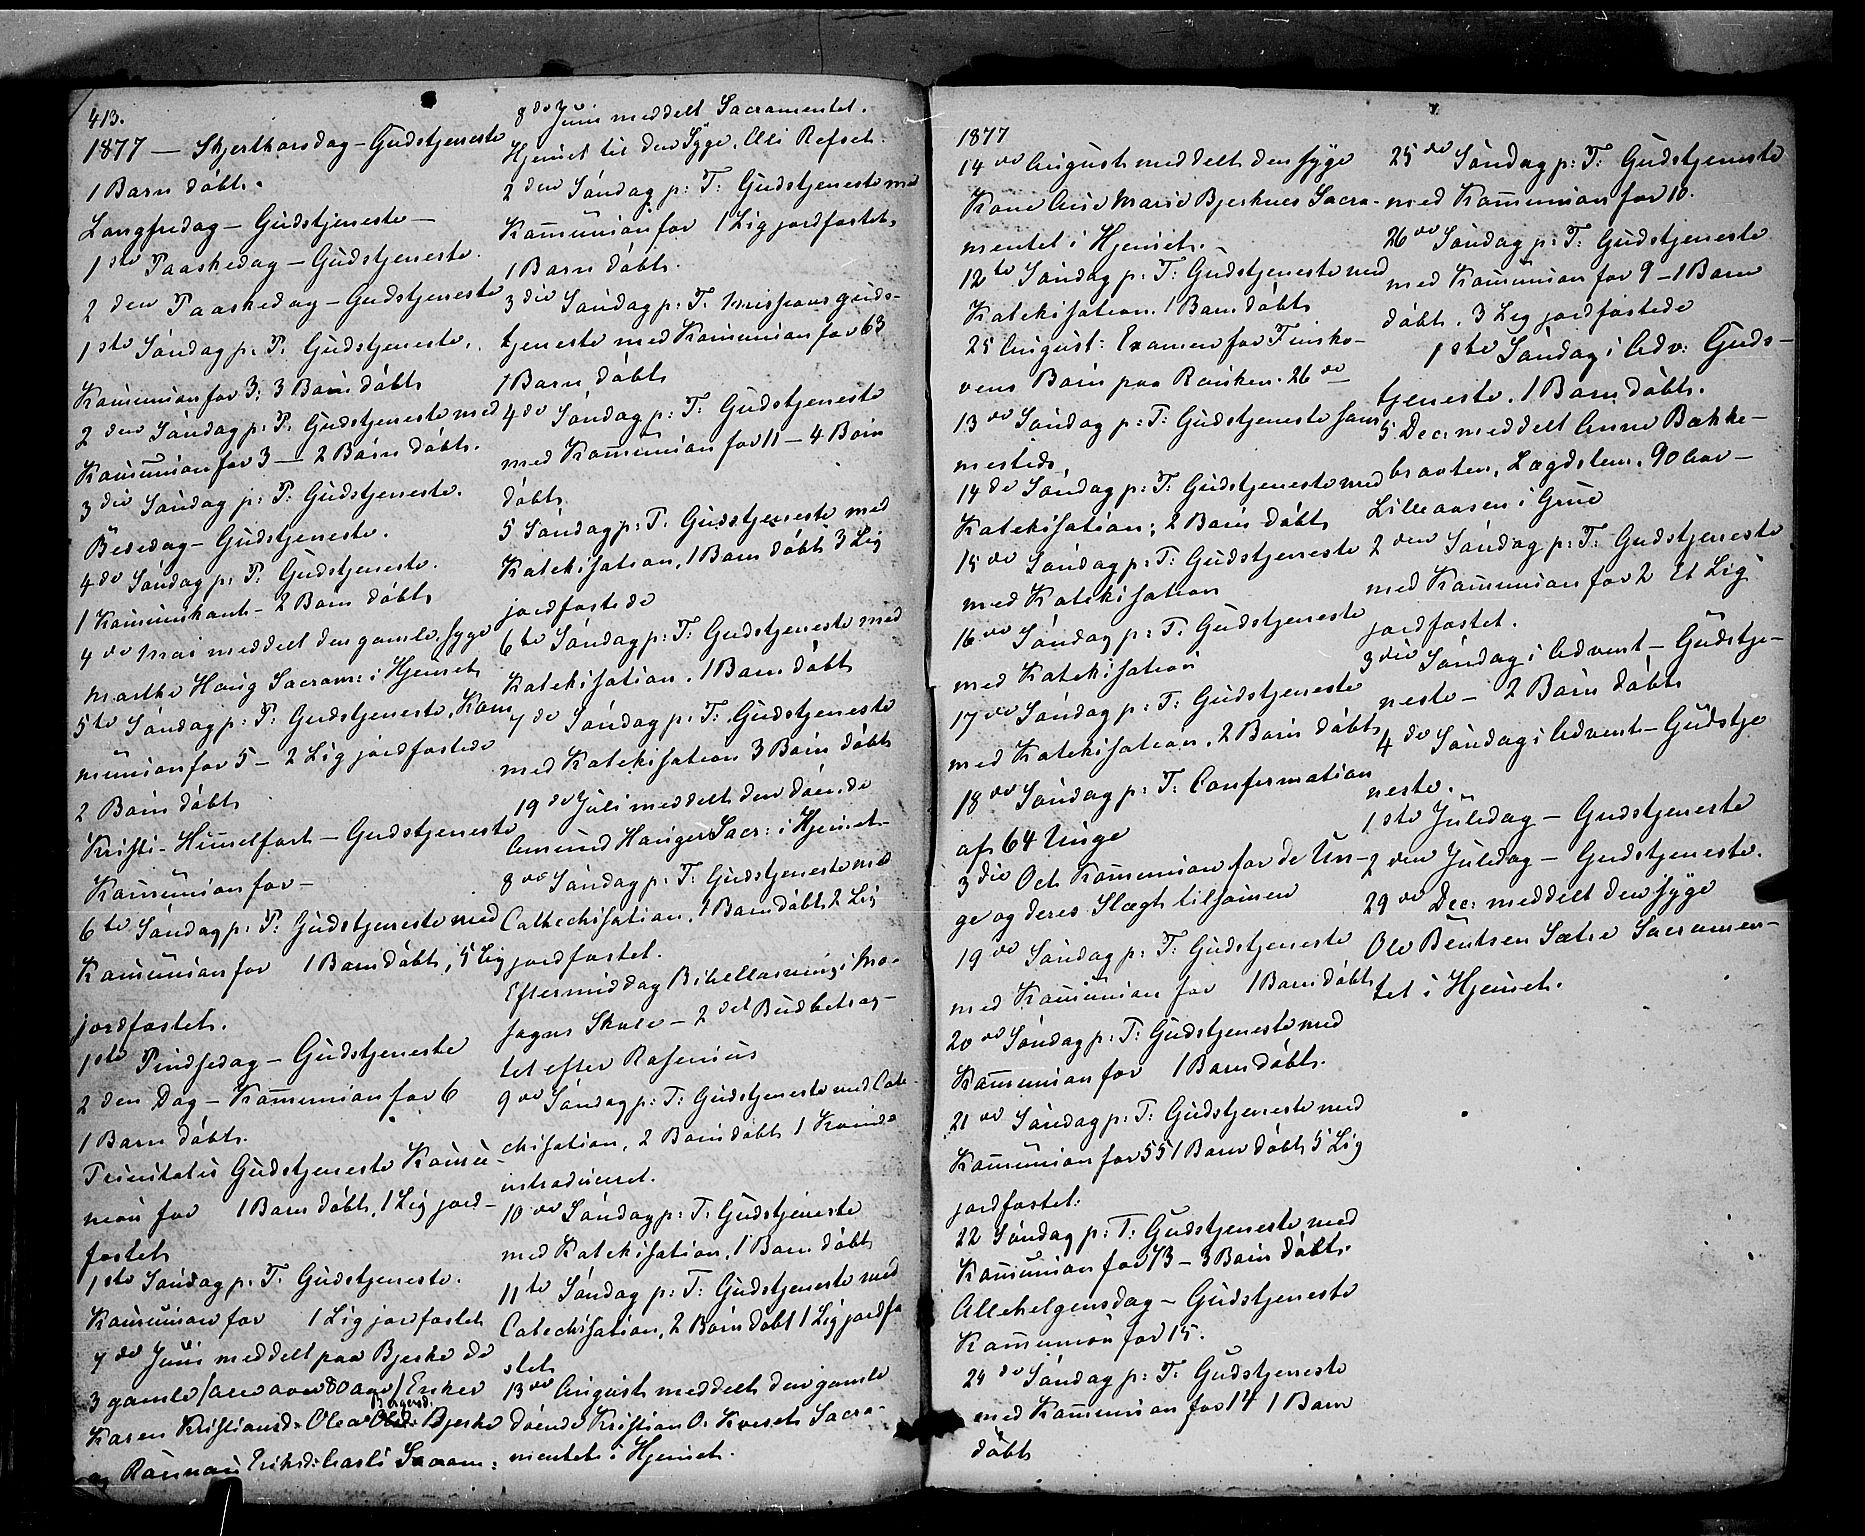 413.
1877 — Skjerthorsdag – Gudstjeneste
1 Barn döbt.
Langfredag – Gudstjeneste –
1ste Paaskedag – Gudstjeneste.
2den Paaskedag – Gudstjeneste
1ste Söndag p. P. Gudstjeneste,
Kom̄union for 3; 3 Börn döbt
2den Söndag p: P. Gudstjeneste med
Kom̄union for 3 — 2 Börn döbt.
3die Söndag p: P: Gudstjeneste.
Bededag – Gudstjeneste.
4de Söndag p: P: Gudstjeneste.
1 Kom̄unikant – 2 Börn döbt
4de Mai meddelt den gamle, syge
Marthe Haug Sacram: i Hjem̄et
5te Söndag p: P: Gudstjeneste, Kom
munion for 5 – 2 Lig jordfæstede
2 Börn döbt
Kristi-Him̄elfart – Gudstjeneste
Kom̄union for –
6te Söndag p: P: Gudstjeneste med
Kom̄union for 1 Barn döbt, 5 Lig
jordfæstet.
1ste Pindsedag – Gudstjeneste
2den Dag – Kom̄union for 6
1 Barn döbt.
Trinitatis Gudstjeneste Kom̄u-
nion for 1 Barn döbt, 1 Lig jord-
fæstet
1ste Söndag p: T. Gudstjeneste.
Kom̄union for 1 Lig jordfæstet
7de Juni meddelt paa Bjerke de
3 gamle /alle over 80 aar/ Enker
Karen Kristiansd. Olea Bjerke
og Rönnau Eriksd: Sacram:
8de Juni meddelt Sacramentet.
Hjem̄et til den Syge, Eli Refset.
2den Söndag p: T: Gudstjeneste med
Kom̄union for 1 Lig jordfæstet,
1 Barn döbt.
3die Söndag p: T. Missionsguds-
tjeneste med Kom̄union for 63
1 Barn döbt
4de Söndag p: T: Gudstjeneste
med Kom̄union for 11 – 4 Börn
döbt
5 Söndag p: T. Gudstjeneste med
Katekisation, 1 Barn döbt 3 Lig
jordfæstede
6te Söndag p: T: Gudstjeneste med
Katekisation, 1 Barn döbt
7de Söndag p: T: Gudstjeneste
med Katekisation 3 Börn döbt
19de Juli meddelt den döende
Amund Hanger Sacr: i Hjem̄et
8de Söndag p: T: Gudstjeneste med
Cathechisation, 1 Barn döbt, 2 Lig
jordfæstet.
Eftermiddag Bibellæsning i Mo-
fagns Skole – 2det Bud betrag-
tet efter Rosenius
9de Söndag p: T: Gudstjeneste med Cate-
chisation, 2 Börn döbt 1 Kvinde
introduceret.
10de Söndag p: T: Gudstjeneste
med Katekisation, 1 Barn döbt
11te Söndag p: T: Gudstjeneste med
Catechisation, 2 Börn döbt 1 Lig jordfæ
stet
13de August meddelt den gamle
döende Kristian O. Kveset Sacra-
mentet i Hjem̄et.
1877
14de August meddelt den syge
Kone Anne Marie Bjerknes Sacra-
mentet i Hjem̄et. –
12te Söndag p: T: Gudstjeneste med
Katekisation. 1 Barn döbt
25 August: Examen for Finsko-
vens Börn paa Rönken. 26de
13de Söndag p: T: Gudstjeneste sam
mesteds,
14de Söndag p: T: Gudstjeneste med
Katekisation; 2 Börn döbt
15de Söndag p: T: Gudstjeneste
med Katekisation
16de Söndag p: T. Gudstjeneste
med Katekisation
17de Söndag p: T: Gudstjeneste
med Katekisation, 2 Börn döbt
18de Söndag p: T. Confirmation
af 64 Unge
3die Oct. Kom̄union for de Un-
ge og deres Slægt tilsam̄en
19de Söndag p: T: Gudstjeneste
med Kom̄union for 1 Barn döbt
20de Söndag p: T: Gudstjeneste med
Kom̄union for 1 Barn döbt.
21de Söndag p: T: Gudstjeneste med
Kom̄union for 55 1 Barn döbt 5 Lig
jordfæstet.
22 Söndag p: T: Gudstjeneste med
Kom̄union for 13 – 3 Börn döbt.
Allehelgensdag – Gudstjeneste
Kom̄union for 15.
24de Söndag p: T: Gudstjeneste
med Kom̄union for 14 1 Barn
döbt
25de Söndag p: T: Gudstjeneste
med Kom̄union for 10.
26de Söndag p: T: Gudstjeneste
med Kom̄union for 9 – 1 Barn
döbt. 3 Lig jordfæstede
1ste Söndag i Adv: Guds-
tjeneste, 1 Barn döbt.
5 Dec. meddelt Anne Bække-
braaten, Lægdslem, 90 Aar –
Lilleaasen i Grue
2den Söndag p: T: Gudstjeneste
med Kom̄union for 2 Et Lig
jordfæstet.
3die Söndag i Advent – Gudstje-
neste – 2 Börn döbt
4de Söndag i Advent – Gudstje
neste.
1ste Juledag – Gudstjeneste
2den Juledag – Gudstjeneste.
29de Dec: meddelt den syge
Ole Bentsen Sætre Sacramen-
tet i Hjem̄et.